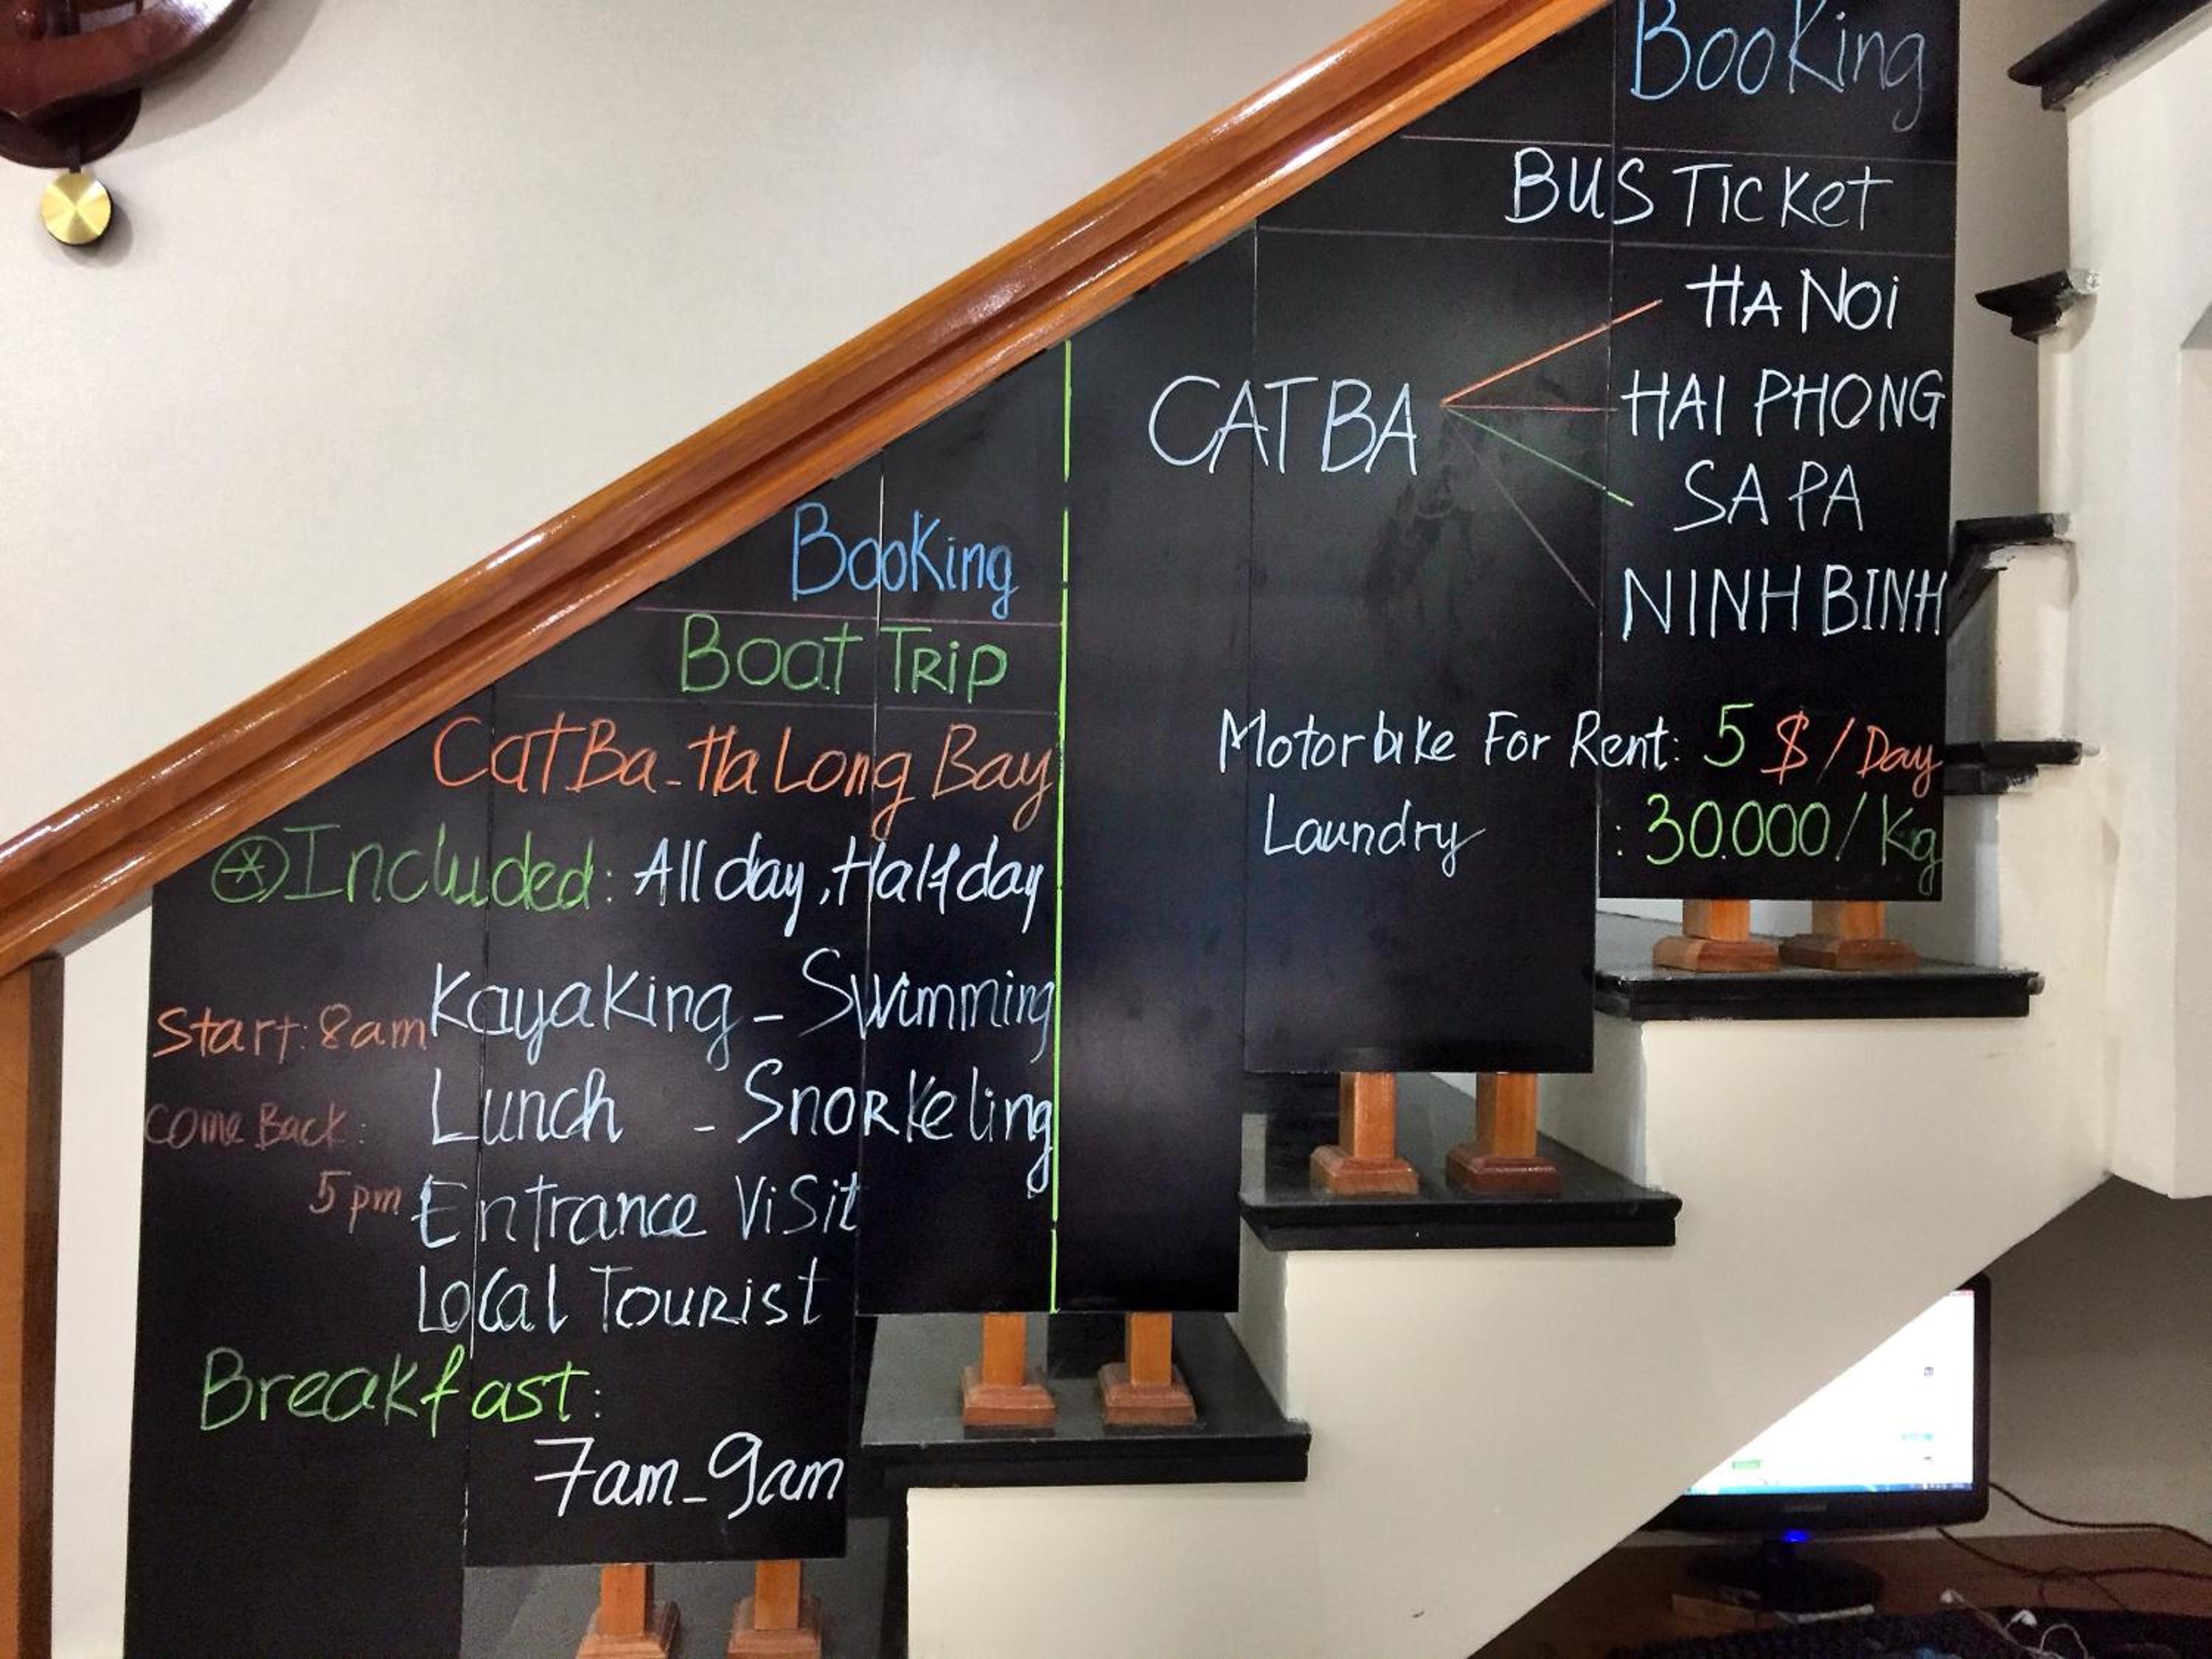 Booking
BUS TICKET
CAT BA
HA NOI
HAI PHONG
SA PA
NINH BINH
Motorbike For Rent: 5 $/Day
Laundry : 30.000/Kg
Booking
Boat Trip
Cat Ba - Ha Long Bay
* Included: All day, Half day
Kayaking - Swimming
Start: 8am
Lunch - Snorkeling
Come Back:
5pm
Entrance Visit
Local Tourist
Breakfast:
7am - 9am
SAMSUNG